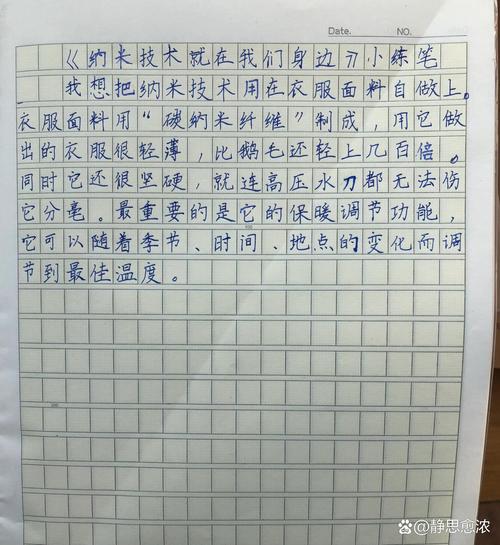 Date.    NO.
《纳米技术就在我们身边》小练笔
我想把纳米技术用在衣服面料自做上。
衣服面料用“碳纳米纤维”制成，用它做
出的衣服很轻薄，比鹅毛还轻上几百倍。
同时它还很坚硬，就连高压水刀都无法伤
它分毫。最重要的是它的保暖调节功能，
它可以随着季节、时间、地点的变化而调
节到最佳温度。
百家号@静思愈浓